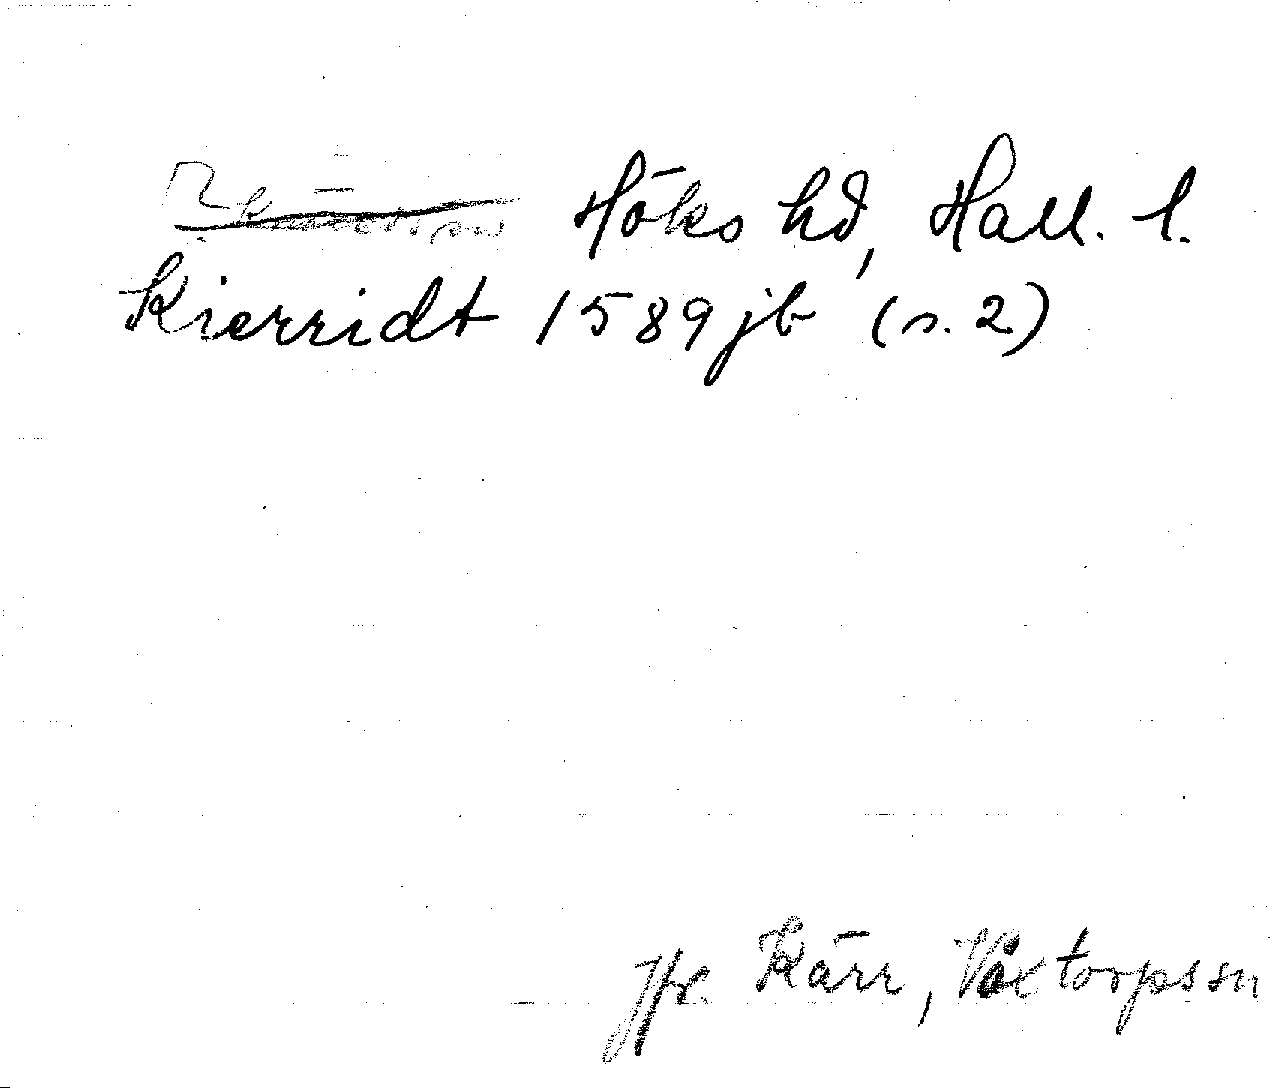 Höks hd, Hall. l.
Kierridt 1589 jb (s. 2)
Jfr. Kärr, Våxtorps sn